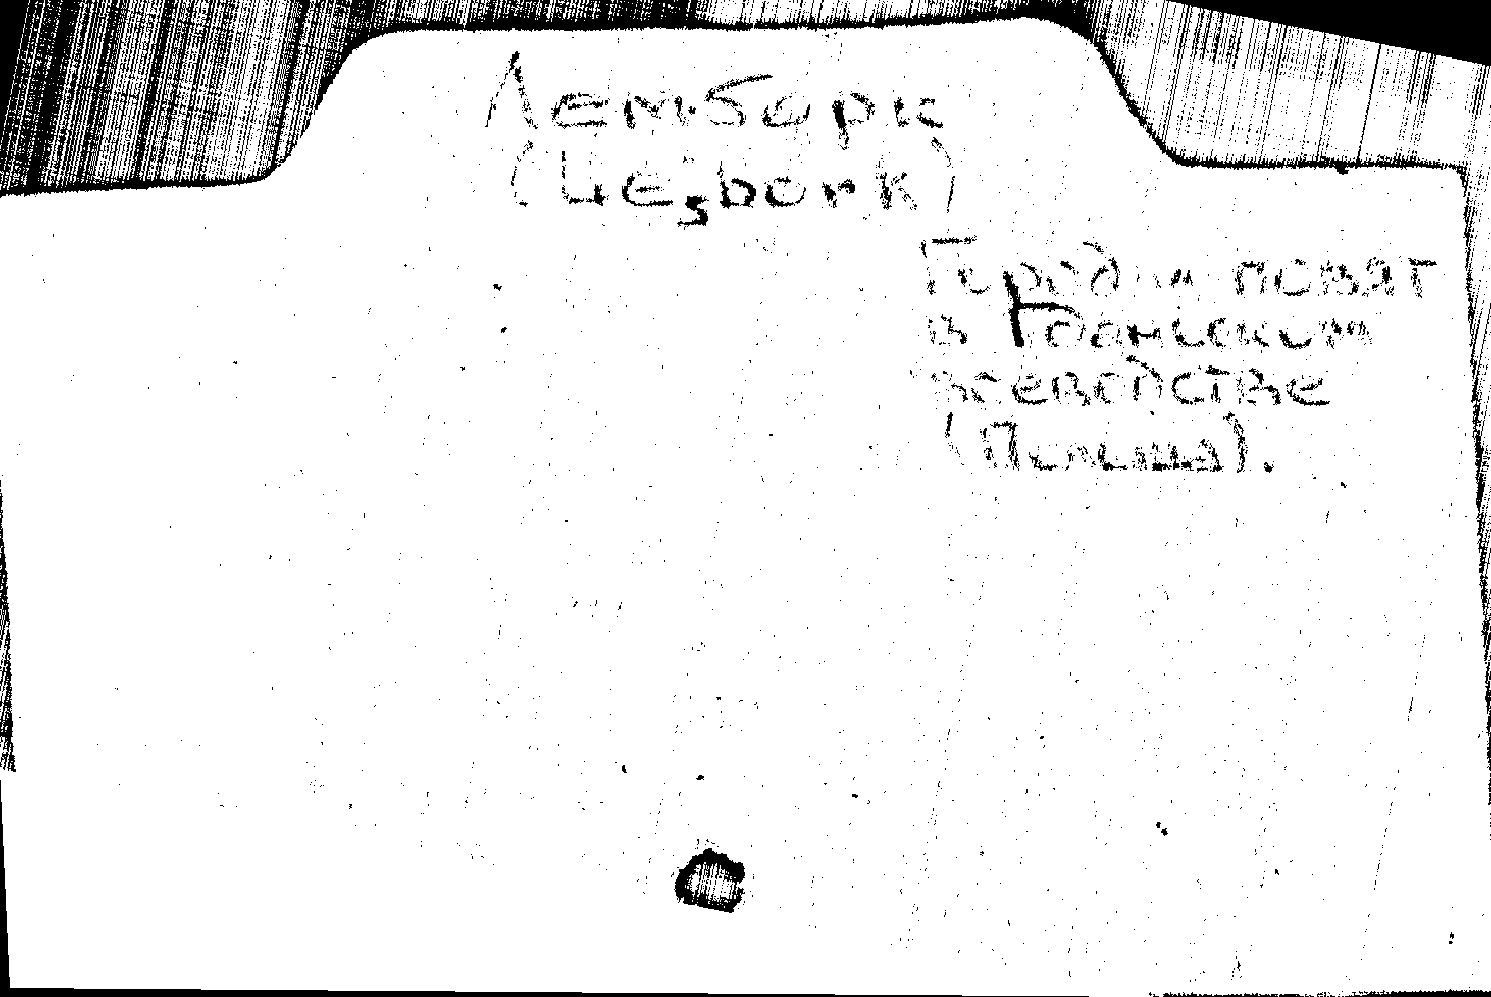 Лемборк
(Lębork)
Город и повят
в Гданьском
воеводстве
(Польша).